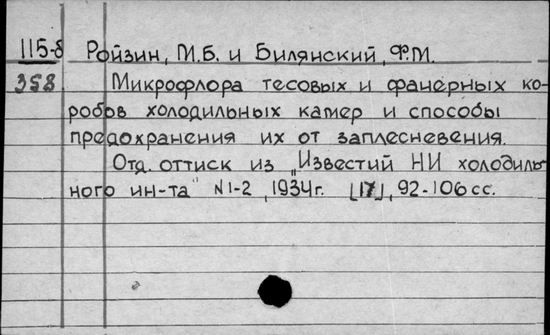 115-б Ройзин, М.Б. и Билянский, Ф.М.
358 Микрофлора тесовых и фанерных ко-
робов холодильных камер и способы
предохранения их от заплесневения.
Отд. оттиск из „Известий НИ холодиль-
ного ин-та" N 1-2, 1934г. [17], 92-106 сс.